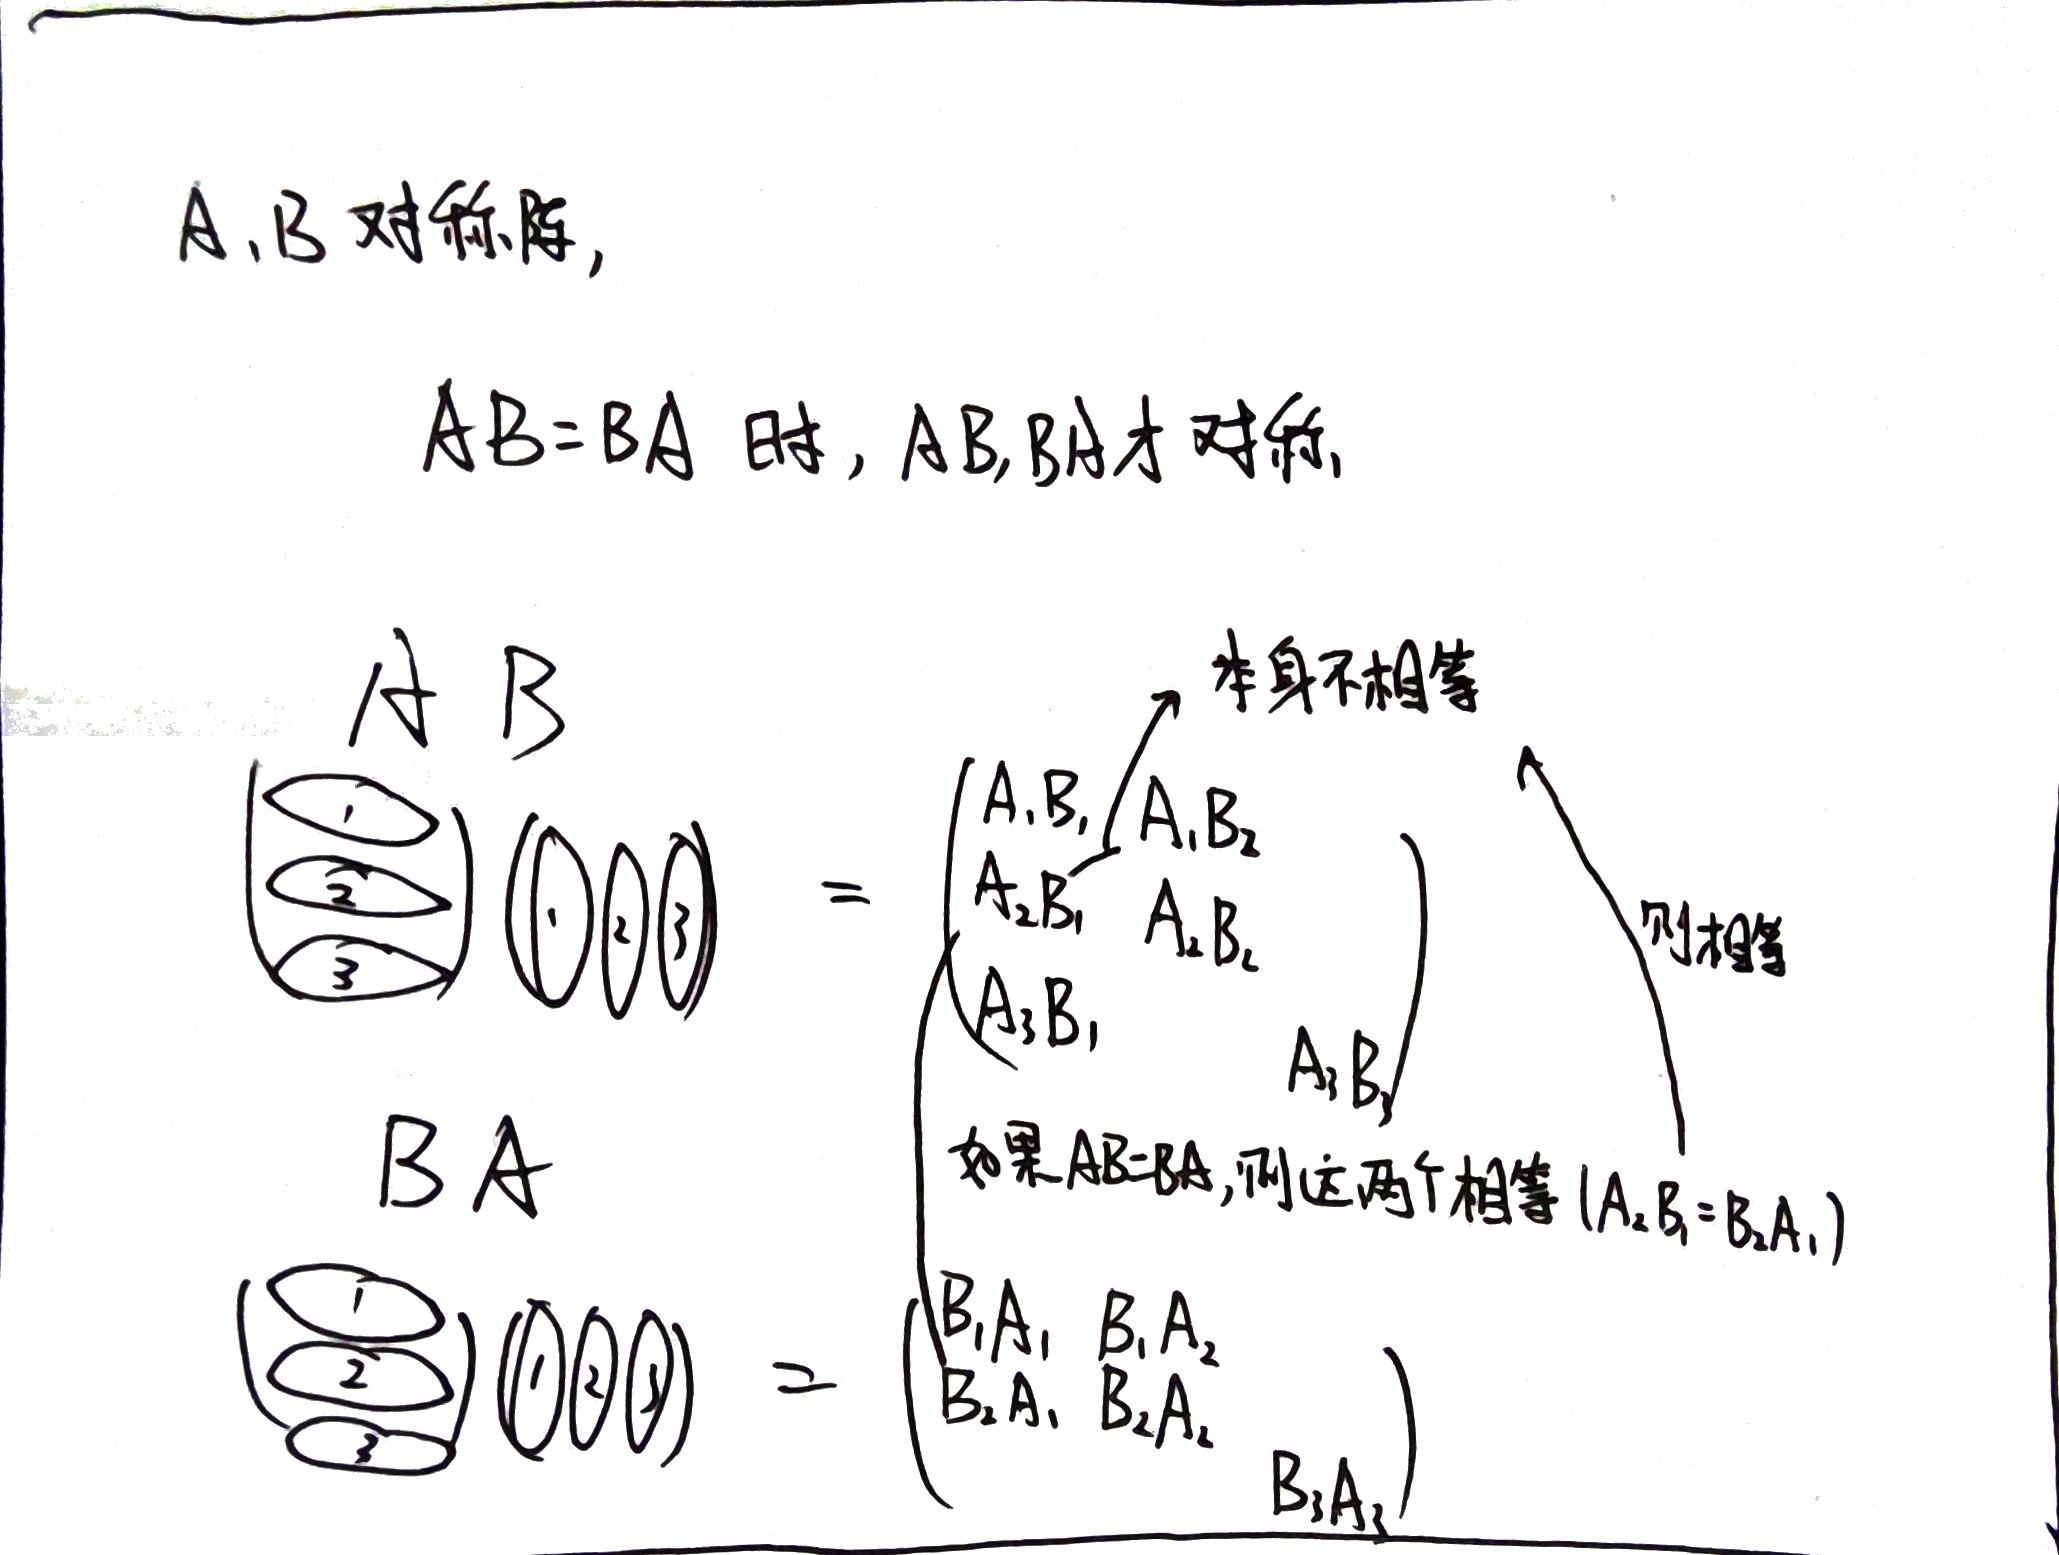 A、B对称阵,
AB=BA 时, AB,BA才对称、
A B
本身不相等
1
2
3
1 2 3
=
A₁B₁ A₁B₂
A₂B₁ A₂B₂
A₃B₁
A₃B₃
则相等
如果AB=BA,则这两个相等(A₂B₁=B₂A₁)
B A
1
2
3
1 2 3
=
B₁A₁ B₁A₂
B₂A₁ B₂A₂
B₃A₃